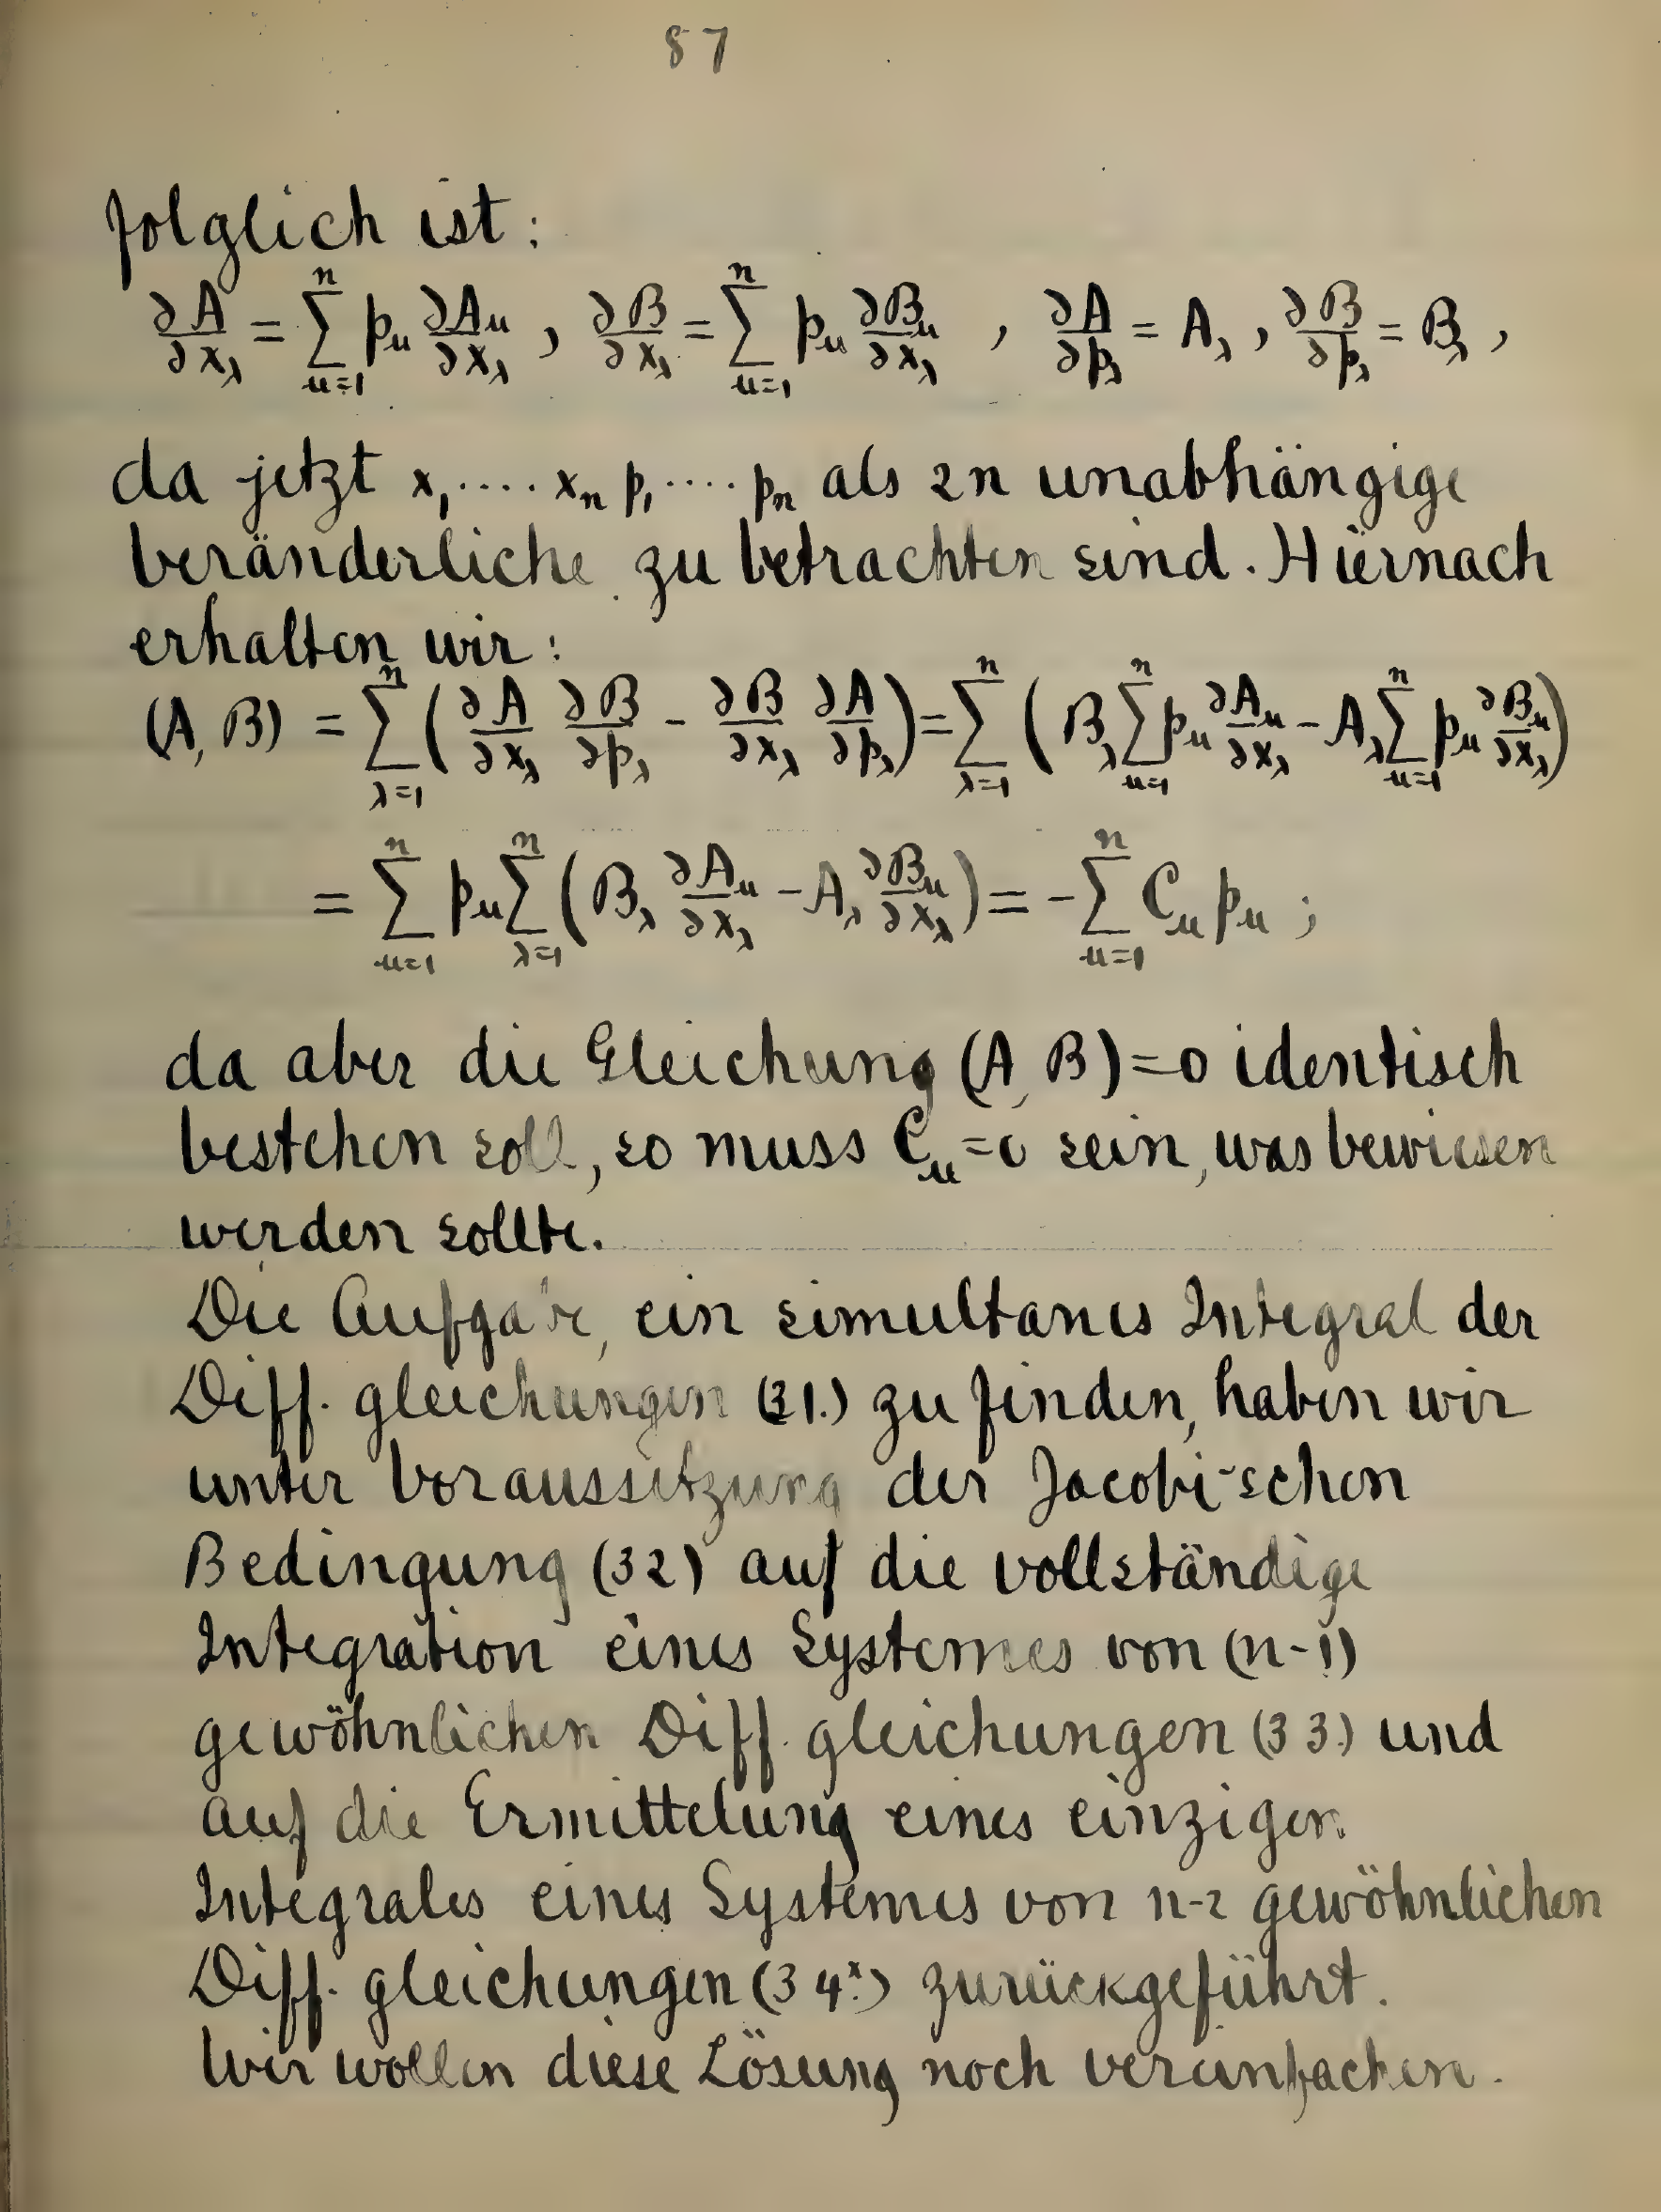 87
folglich ist:
∂A/∂x_λ = ∑_{μ=1}^{n} p_μ ∂A_μ/∂x_λ , ∂B/∂x_λ = ∑_{μ=1}^{n} p_μ ∂B_μ/∂x_λ , ∂A/∂p_λ = A_λ , ∂B/∂p_λ = B_λ ,
da jetzt x_1 .... x_n p_1 .... p_n als 2n unabhängige
Veränderliche zu betrachten sind. Hiernach
erhalten wir:
(A, B) = ∑_{λ=1}^{n} ( ∂A/∂x_λ ∂B/∂p_λ - ∂B/∂x_λ ∂A/∂p_λ ) = ∑_{λ=1}^{n} ( B_λ ∑_{μ=1}^{n} p_μ ∂A_μ/∂x_λ - A_λ ∑_{μ=1}^{n} p_μ ∂B_μ/∂x_λ )
= ∑_{μ=1}^{n} p_μ ∑_{λ=1}^{n} ( B_λ ∂A_μ/∂x_λ - A_λ ∂B_μ/∂x_λ ) = - ∑_{μ=1}^{n} C_μ p_μ ;
da aber die Gleichung (A, B)=0 identisch
bestehen soll, so muss C_μ=0 sein, was bewiesen
werden sollte.
Die Aufgabe, ein simultanes Integral der
Diff. gleichungen (31.) zu finden, haben wir
unter Voraussetzung der Jacobi-schen
Bedingung (32) auf die vollständige
Integration eines Systemes von (n-1)
gewöhnlichen Diff. gleichungen (33.) und
auf die Ermittelung eines einzigen
Integrales eines Systemes von n-2 gewöhnlichen
Diff. gleichungen (34ˣ.) zurückgeführt.
Wir wollen diese Lösung noch vereinfachen.